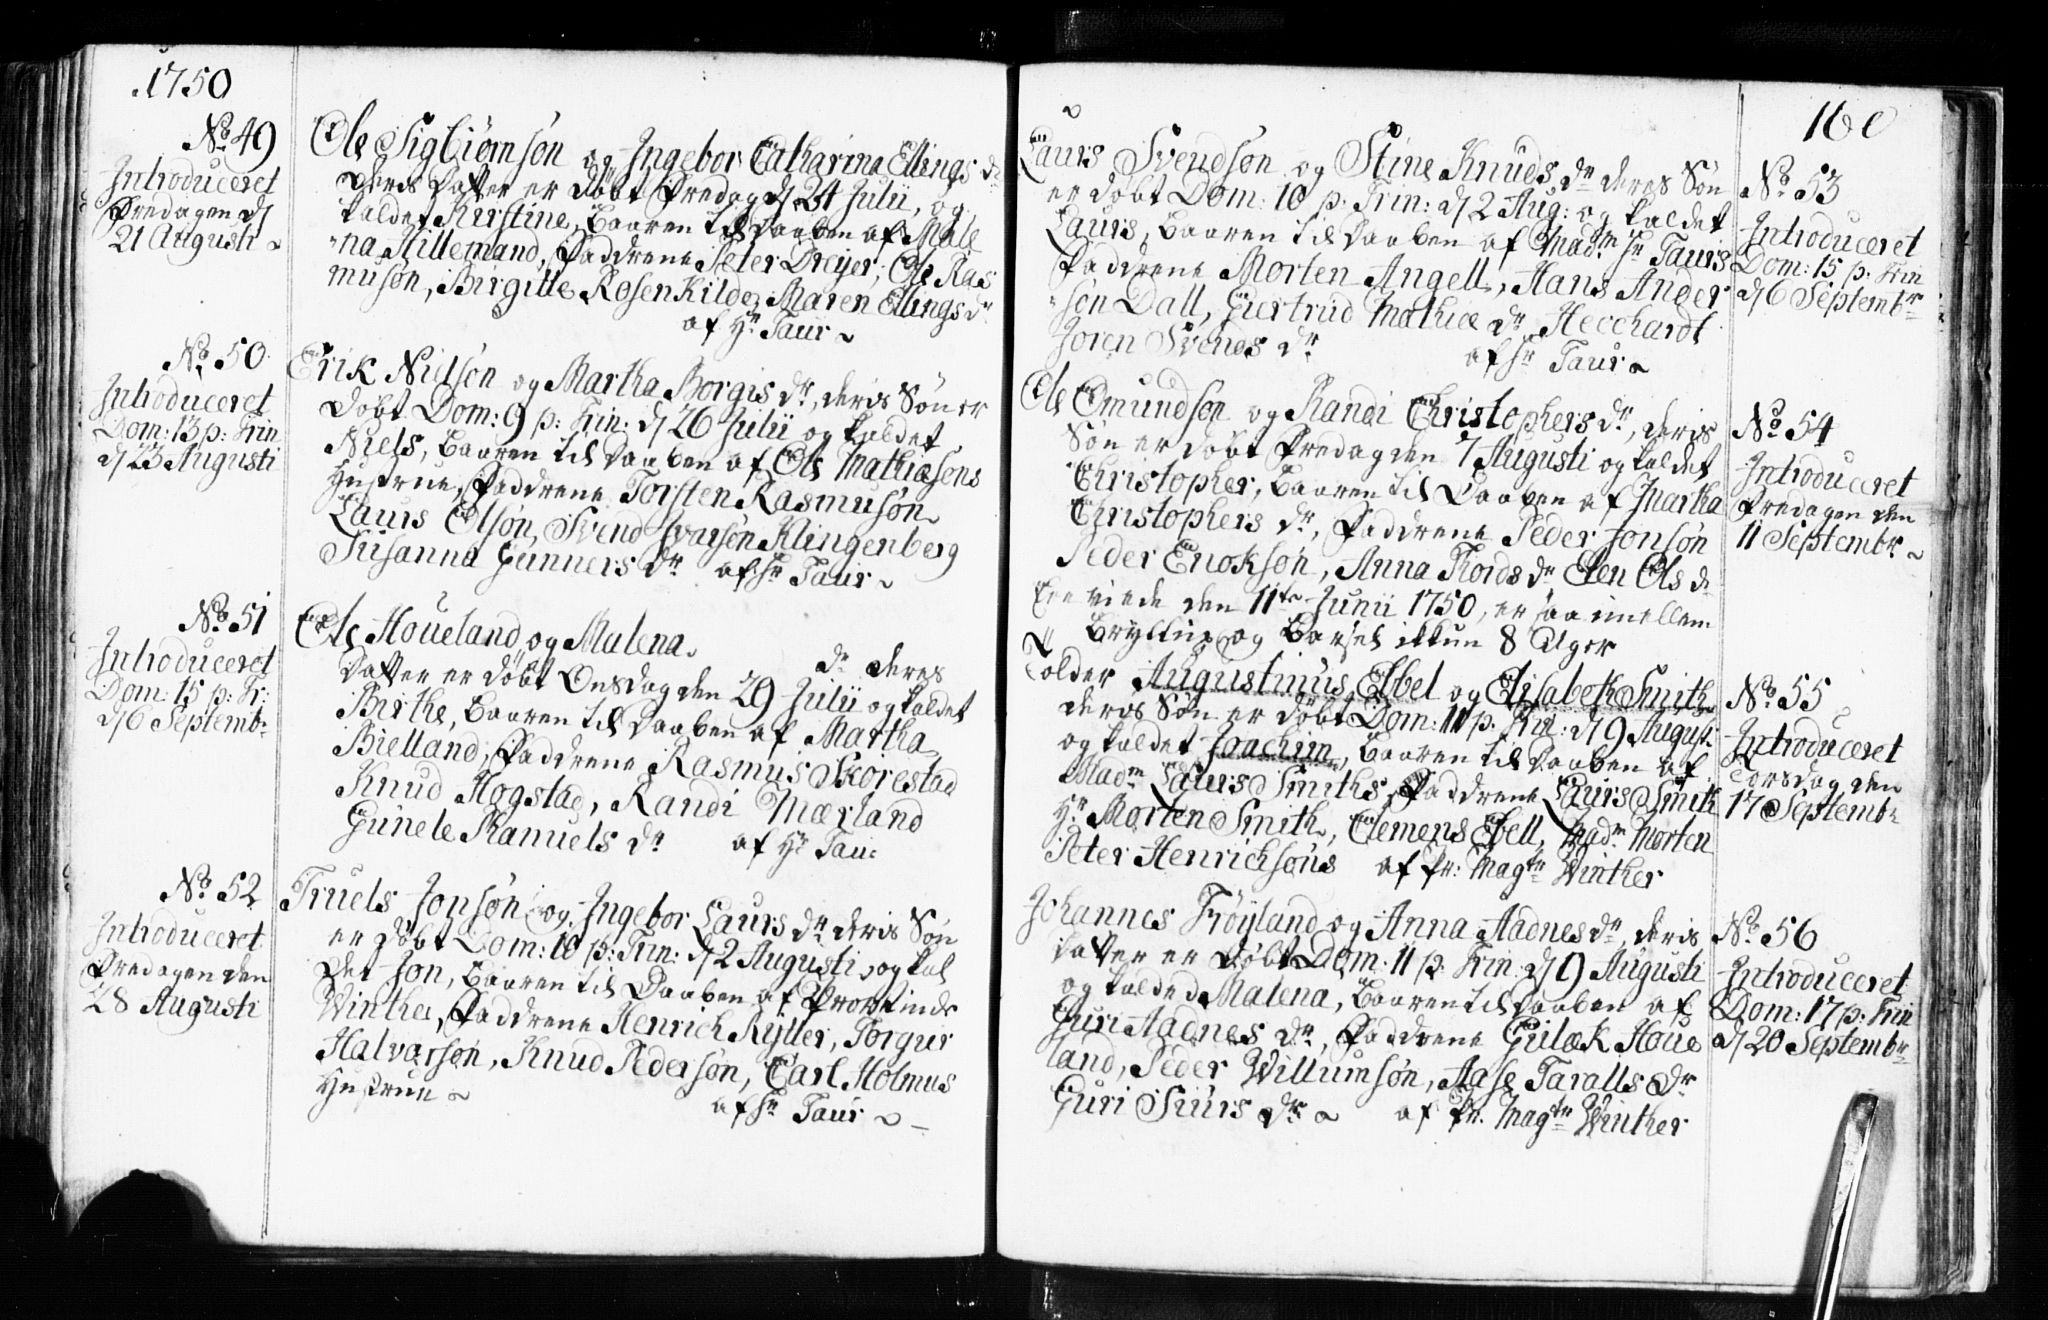 1750
No. 49
Introduceret
Fredagen d/
21 Augusti
Ole Sigbiørnsøn og Ingebor Catharina Ellings dr
deris Datter er døbt Fredag d/ 24 Julii, og
kaldet Kirstine, Baaren til Daaben af Male
"na Hillemand, Faddrene Peter Dreyer, Ole Ras
musøn, Birgitte Rosenkilde, Maren Ellings dr
af Hr Taur
No. 50
Introduceret
Dom: 13 p: Trin
d/ 23 Augusti
Erik Nielsøn og Martha Borgis dr, deris Søn er
døbt Dom: 9 p: Trin: d/ 26 Julii og kaldet
Niels, Baaren til Daaben af Ole Mathiæsøns
Hustrue, Faddrene Torsten Rasmusøn
Laurs Olsøn, Svend Ivarsøn Klingenberg
Susanna Gunners dr af Hr Taur
No. 51
Introduceret
Dom: 15 p: Tr:
d/ 6 Septembr
Ole Houeland og Malena
dr deres
Datter er døbt Onsdag den 29 Julii og kaldet
Birthe, Baaren til Daaben af Martha
Bielland, Faddrene Rasmus Skorestad
Knud Hogstad, Randi Mærland
Gunele Manuels dr af Hr Taur
No. 52
Introduceret
Fredagen den
28 Augusti
Truels Jonsøn og Ingebor Laurs dr deris Søn
er døbt Dom: 10 p: Trin: d/ 2 Augusti, og kal
det Jon, Baaren til Daaben af Provstinde
Winther, Faddrene Henrich Rytter, Torgier
Halvorsøn, Knud Pedersøn, Carl Holmus
Hustrue af Hr Taur
160
Laurs Svendsøn og Stine Knuds dr deres Søn
er døbt Dom: 10 p: Trin: d/ 2 Aug: og kaldet
Laurs, Baaren til Daaben af Madm Hr Taurs
Faddrene Morten Angell, Hans Ander
"søn Dall, Giertrud Mathiæ dr Hecchardt
Joren Svends dr af Hr Taur
No. 53
Introduceret
Dom: 15 p: Trin
d/ 6 Septembr
Ole Omundsøn og Randi Christophers dr, deris
Søn er døbt Fredag den 7 Augusti og kaldet
Christopher, Baaren til Daaben af Martha
Christophers dr, Faddrene Peder Jonsøn
Peder Enoksøn, Anna Tords dr Elen Ols dr
Ere viede den 11te Junii 1750, er saa imellem
Bryllup og Barsel ikkun 8 Uger
No. 54
Introduceret
Fredagen den
11 Septembr
Tolder Augustinus Ebel og Elisabeth Smith
deres Søn er døbt Dom: 11 p: Trin: d/ 9 August:
og kaldet Joachim, Baaren til Daaben af
Madm Laurs Smiths, Faddrene Laurs Smith
Hr Morten Smith, Clemens Ebell, Madm Morten
Peter Henrichsøns af Pr: Magtr Winther
No. 55
Introduceret
Torsdag den
17 Septembr
Johannes Frøyland og Anna Aadnes dr, deris
Datter er døbt Dom: 11 p: Trin. d/ 9 Augusti
og kalded Malena, Baaren til Daaben af
Guri Aadnes dr, Faddrene Gulæk Houe
land, Peder Willumsøn, Aase Taralls dr
Guri Siurs dr af Pr. Magtr Winther
No. 56
Introduceret
Dom: 17 p: Trin
d/ 20 Septembr